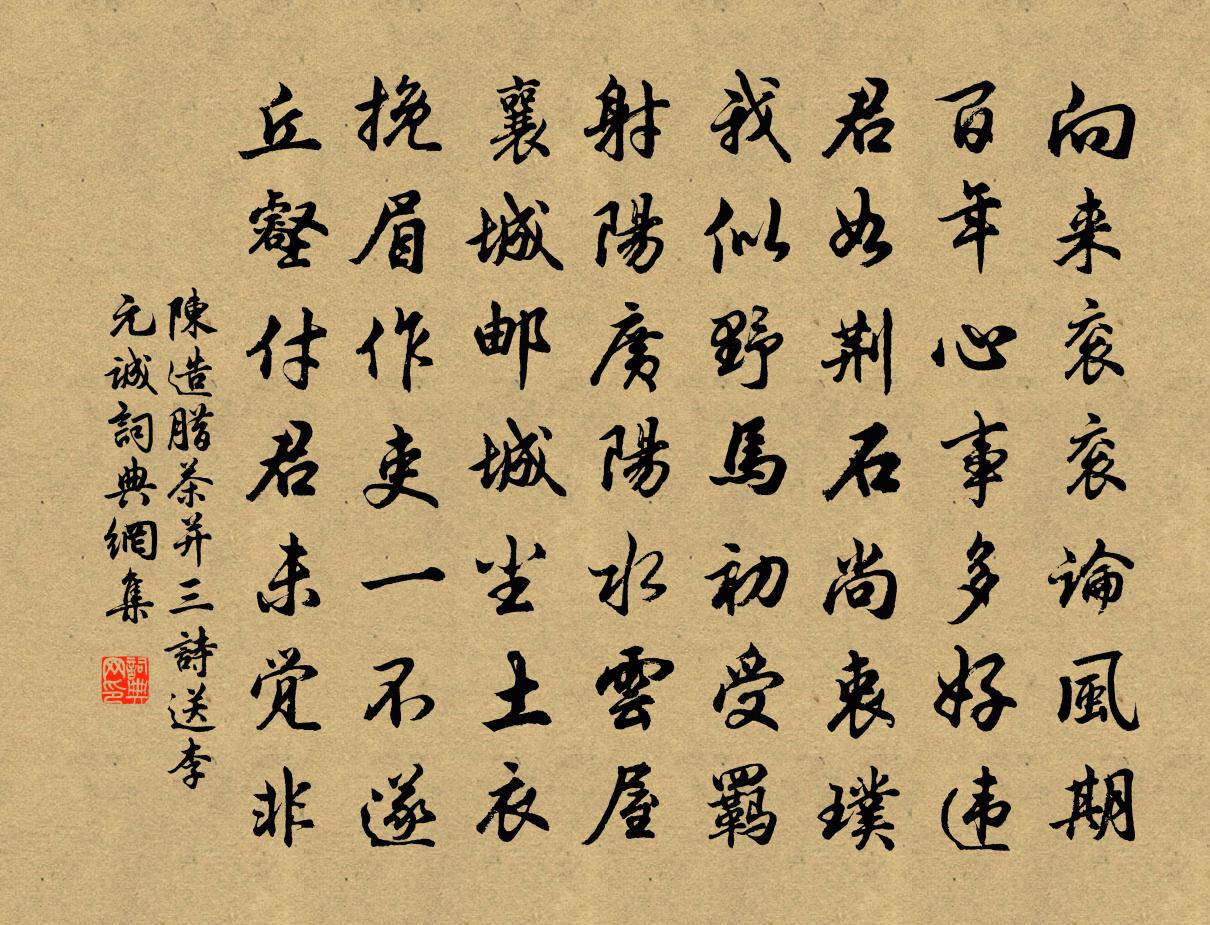 向来衮衮論風期
百年心事多好违
君如荆石尚衷璞
我似野馬初受羈
射陽廣陽水雲屋
襄城邮城尘土衣
挽眉作吏一不遂
丘壑付君未觉非
陳造腊茶并三詩送李
元誠詞典網集
詞典网印